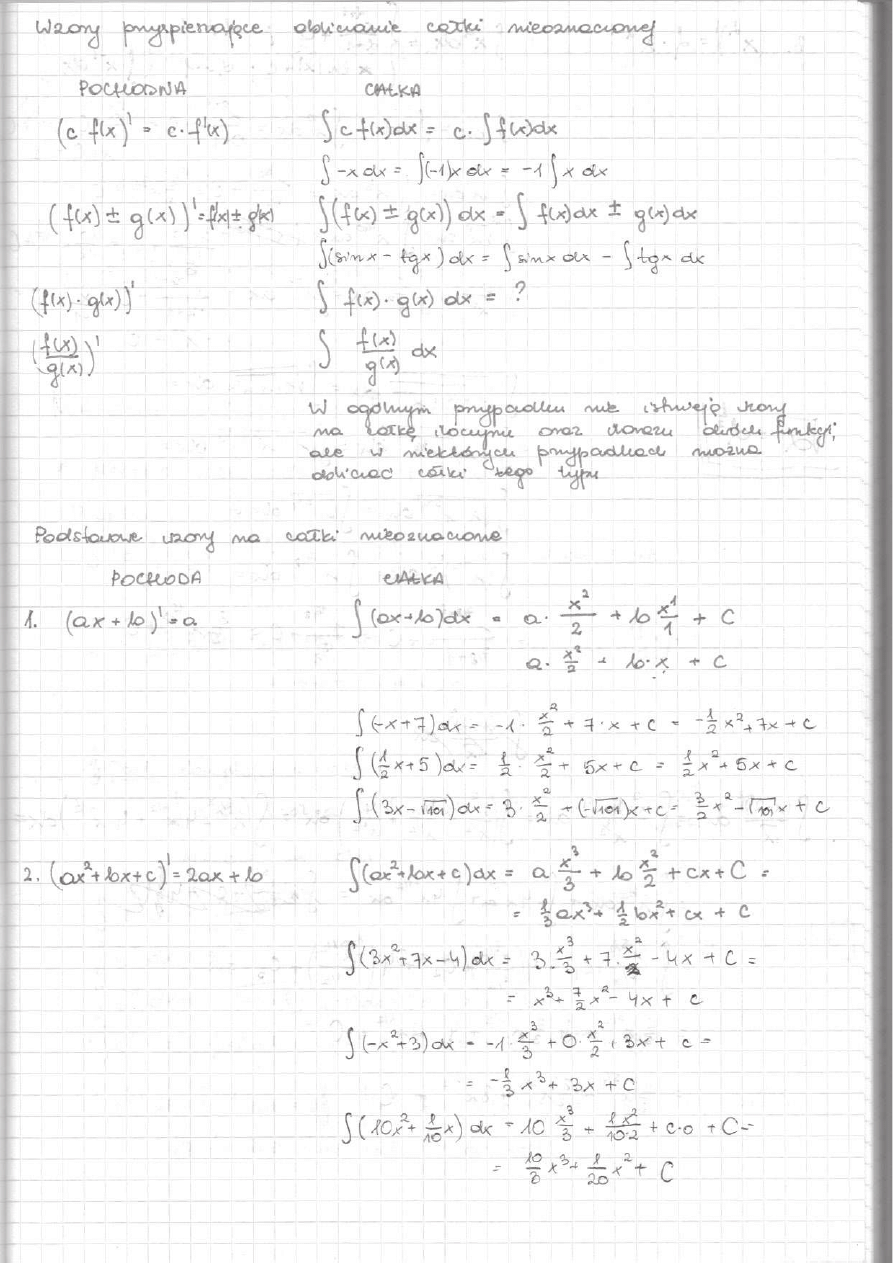 Wzory przyspieszające obliczanie całki nieoznaczonej
POCHODNA CAŁKA
(c f(x))' = c · f'(x) ∫ c f(x)dx = c · ∫ f(x)dx
∫ -x dx = ∫(-1)x dx = -1 ∫ x dx
(f(x) ± g(x))' = f'(x) ± g'(x) ∫(f(x) ± g(x)) dx = ∫ f(x)dx ± g(x)dx
∫(sinx - tgx) dx = ∫ sinx dx - ∫ tgx dx
(f(x) · g(x))' ∫ f(x) · g(x) dx = ?
(f(x)/g(x))' ∫ f(x)/g(x) dx
W ogólnym przypadku nie istnieją wzory
na całkę iloczynu oraz ilorazu dwóch funkcji,
ale w niektórych przypadkach można
obliczać całki tego typu
Podstawowe wzory na całki nieoznaczone
POCHODA CAŁKA
1. (ax + b)' = a ∫ (ax+b)dx = a · x²/2 + b x¹/1 + C
a · x²/2 + b·x + C
∫(-x+7)dx = -1 · x²/2 + 7 · x + C = -1/2 x² + 7x + C
∫(1/2 x+5)dx = 1/2 · x²/2 + 5x + C = 1/2 x² + 5x + C
∫(3x-√101)dx = 3 · x²/2 + (-√101)x + C = 3/2 x² - √101 x + C
2. (ax²+bx+c)' = 2ax + b ∫(ax²+bx+c)dx = a x³/3 + b x²/2 + cx + C =
= 1/3 ax³ + 1/2 bx² + cx + C
∫(3x²+7x-4)dx = 3 · x³/3 + 7 · x²/2 - 4x + C =
= x³ + 7/2 x² - 4x + C
∫(-x²+3)dx = -1 · x³/3 + 0 · x²/2 + 3x + C =
= -1/3 x³ + 3x + C
∫(10x² + 1/10 x) dx = 10 x³/3 + 1x²/10·2 + c·0 + C =
= 10/3 x³ + 1/20 x² + C